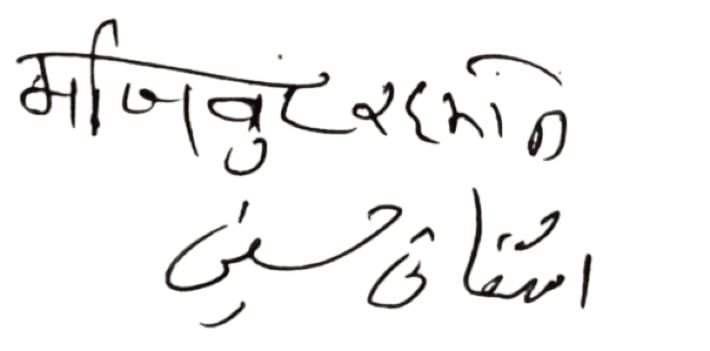 मजिबुर रहमान
اشفاق حسین